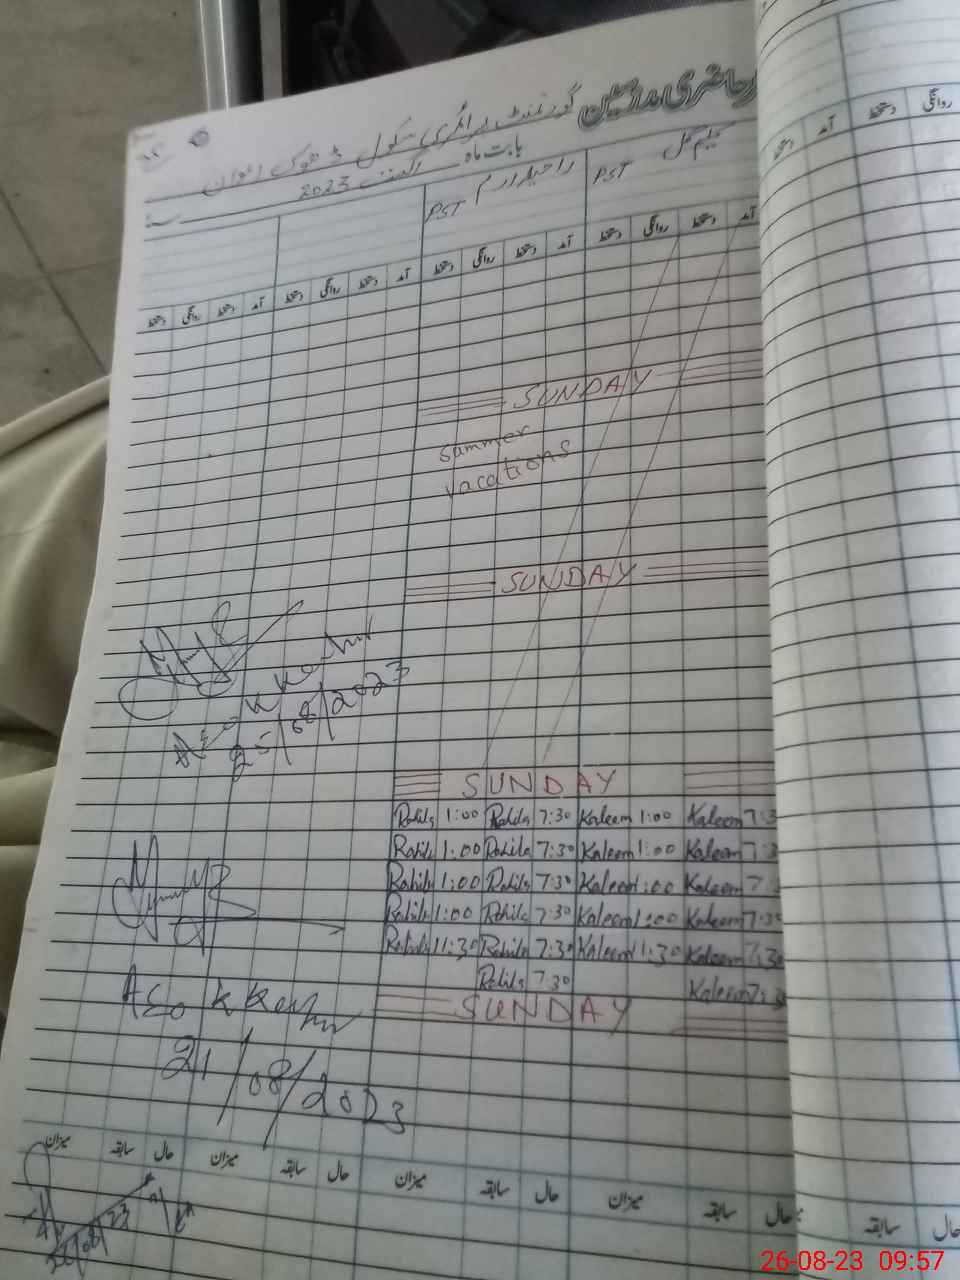 حاضری مدرسین گورنمنٹ پرائمری سکول ڈھوک اعوان
بابت ماہ اگست 2023
کلیم گل PST راحیلہ ارم PST
آمد دستخط روانگی دستخط آمد دستخط روانگی دستخط آمد دستخط روانگی دستخط آمد دستخط روانگی دستخط
روانگی دستخط آمد دستخط
SUNDAY
Summer
vacations
SUNDAY
AEO K Kashr
25/08/2023
SUNDAY
Rahila 1:00 Rahila 7:30 Kaleem 1:00 Kaleem 7:3
Rahila 1:00 Rahila 7:30 Kaleem 1:00 Kaleem 7:3
Rahila 1:00 Rahila 7:30 Kaleem 1:00 Kaleem 7:
Rahila 1:00 Rahila 7:30 Kaleem 1:00 Kaleem 7:30
Rahila 11:30 Rahila 7:30 Kaleem 11:30 Kaleem 7:30
Rahila 7:30 Kaleem 7:30
SUNDAY
AEO K Kashr
21/08/2023
حال سابقہ میزان حال سابقہ میزان حال سابقہ میزان حال سابقہ میزان
حال سابقہ
26/08/23
26-08-23 09:57